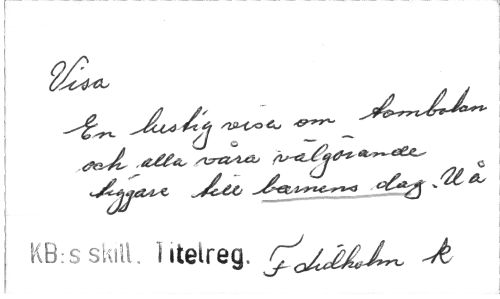 Visa
En lustig visa om tombolan
och alla våra välgörande
tiggare till barnens dag. U å
KB:s skill. Titelreg. F Lidholm k